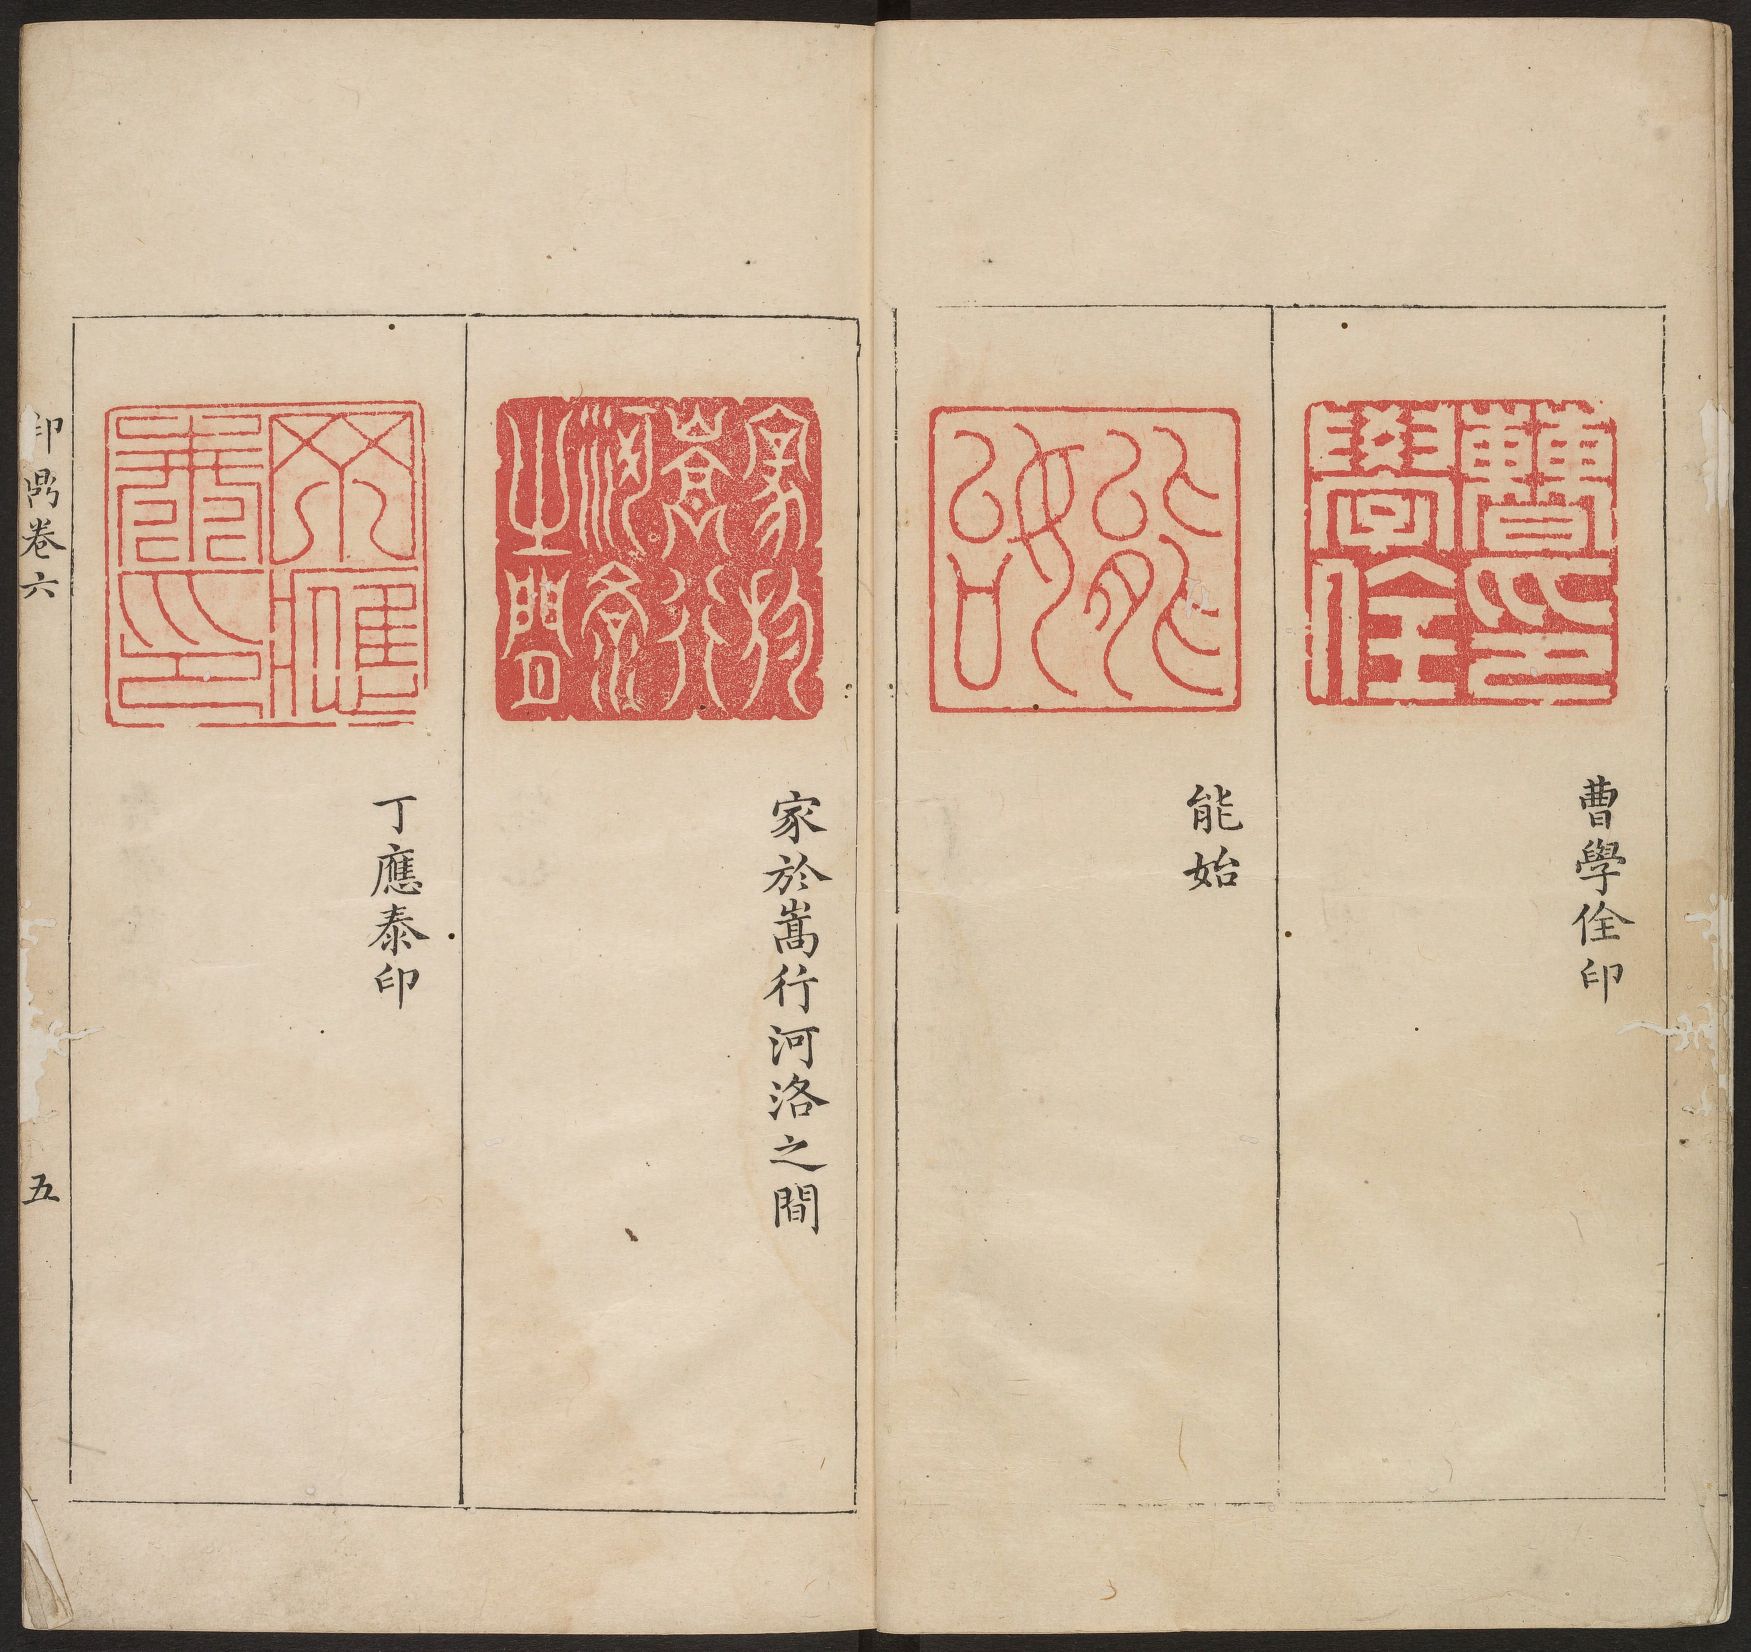 曹學佺印
能始
家於嵩行河洛之間
丁應泰印
印雋卷六
五